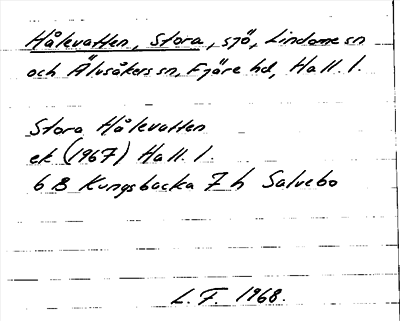 Hålevatten, Stora, sjö, Lindome sn
och Älvsåkers sn, Fjäre hd, Hall. l.
Stora Hålevatten
ek (1967) Hall. l.
6 B Kungsbacka 7 h Salvebo
L. F. 1968.